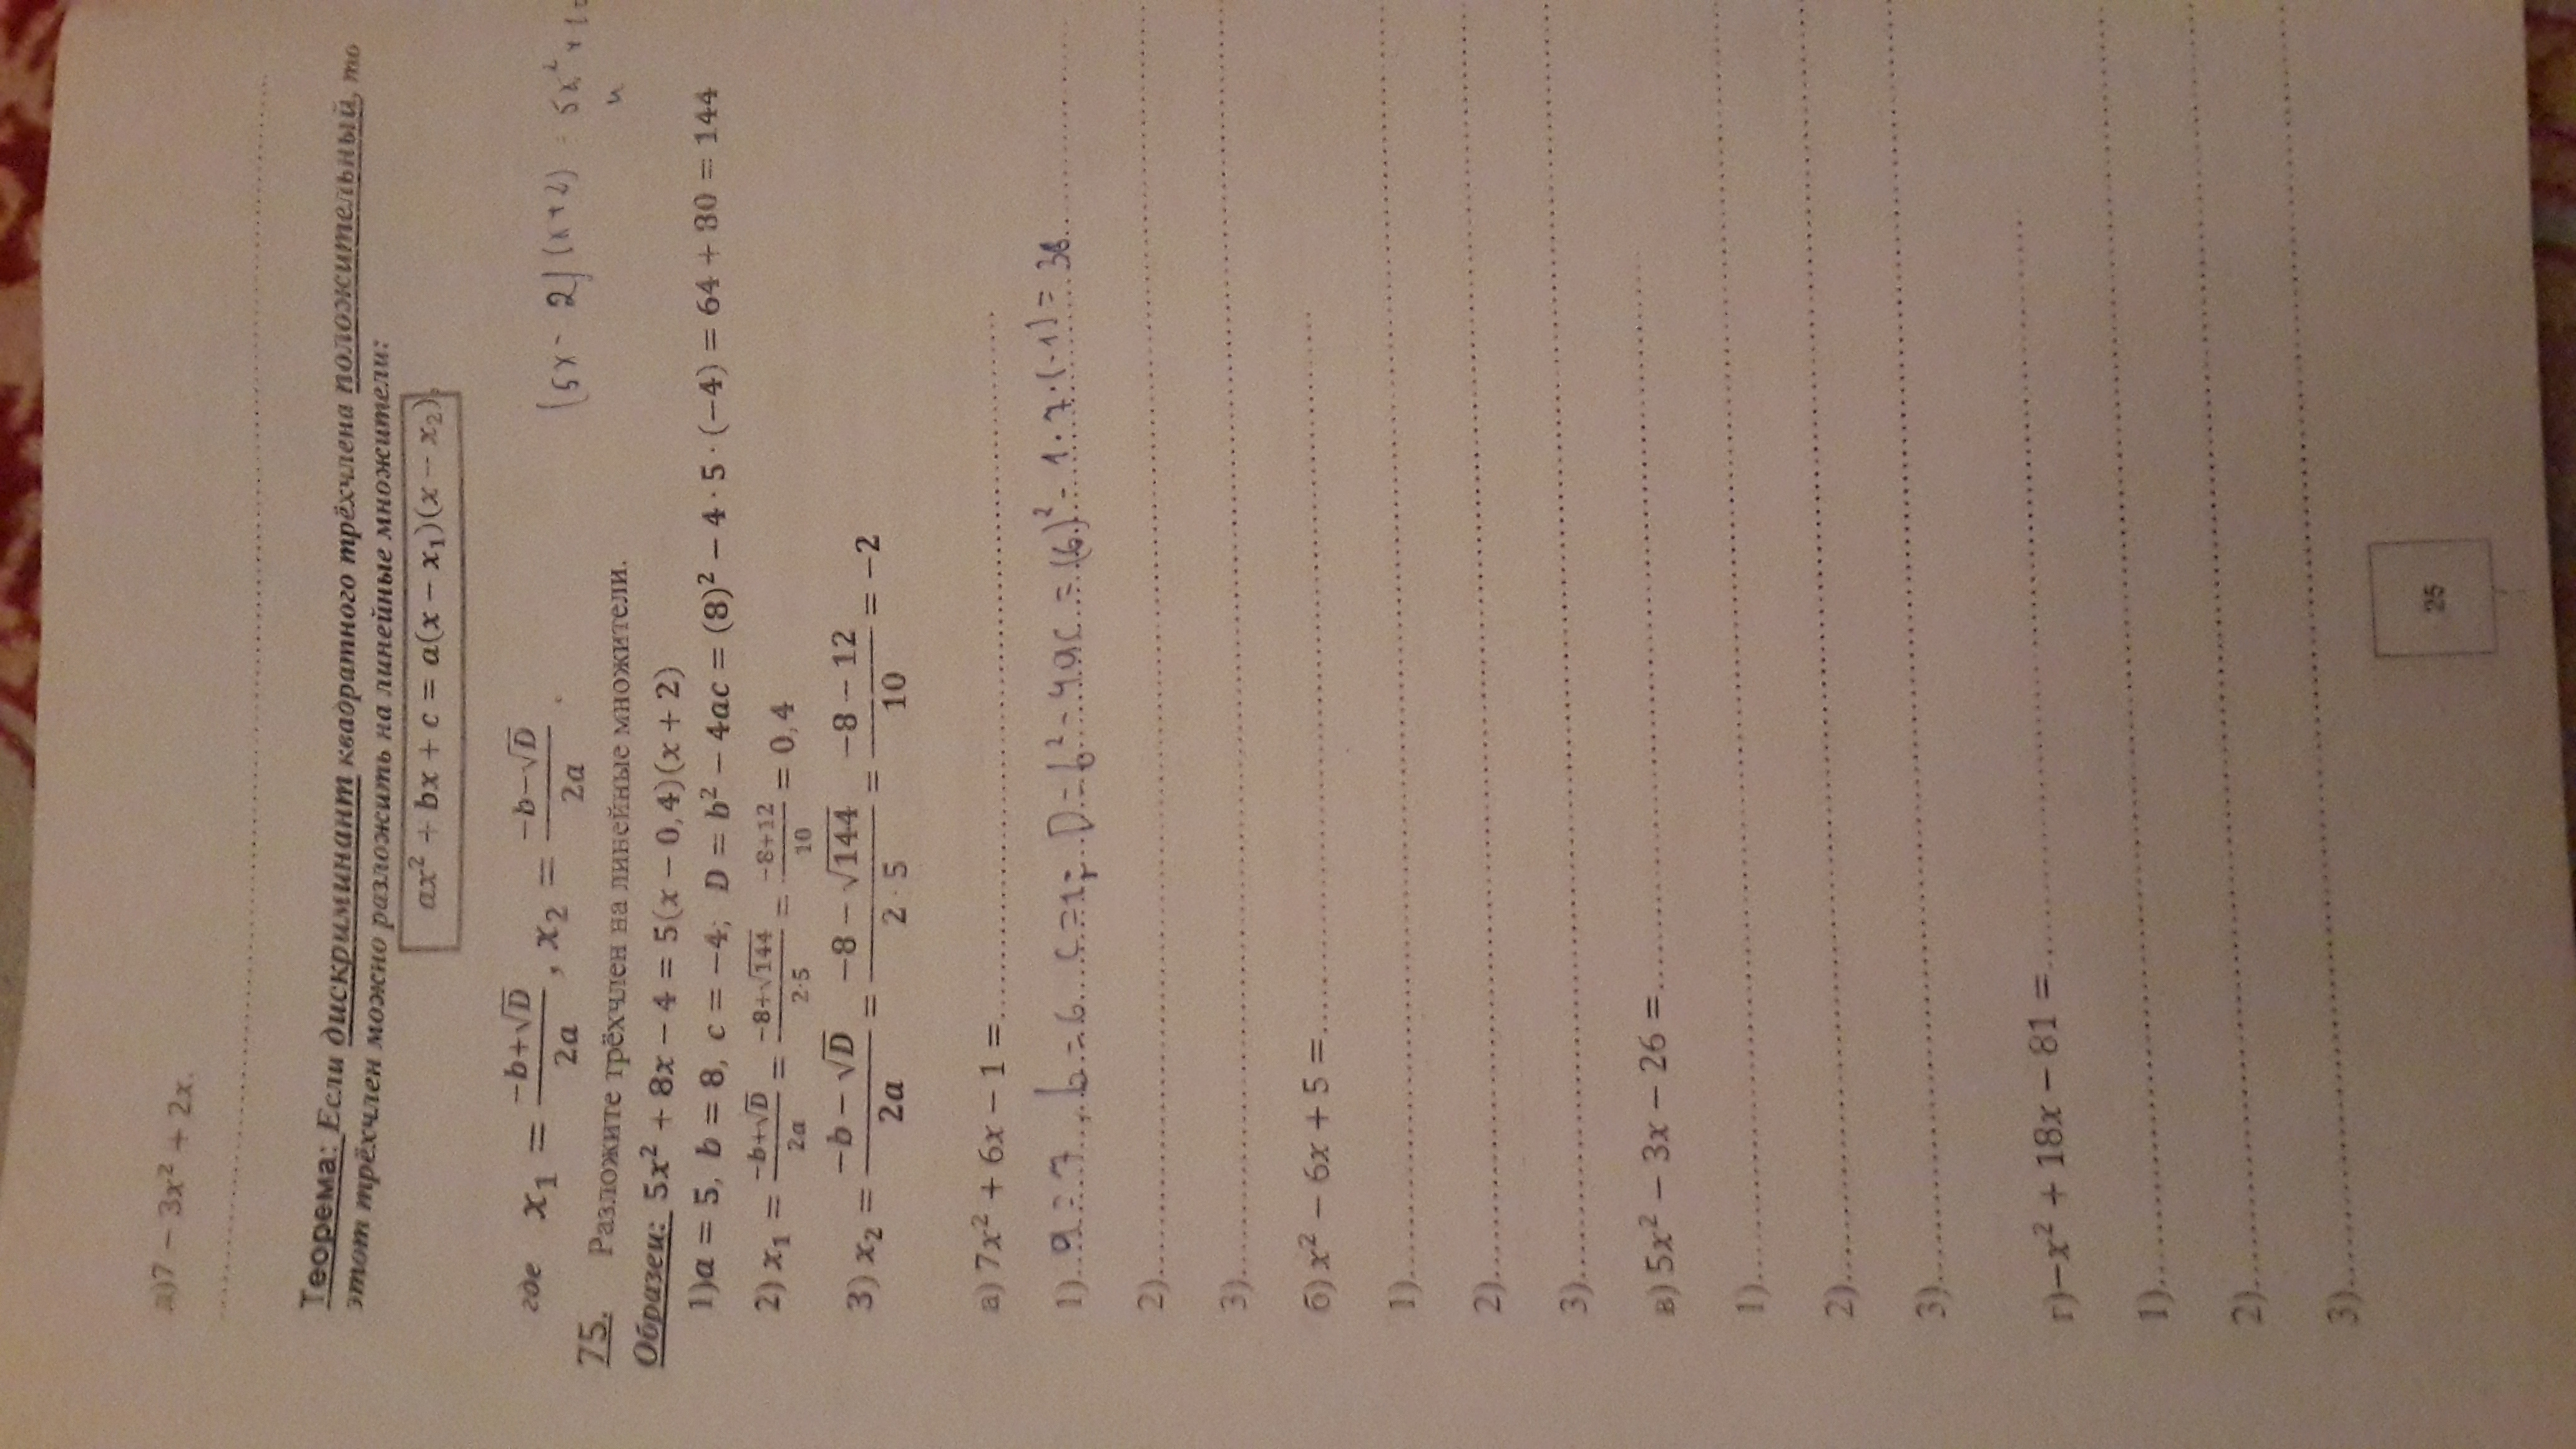 д)7 − 3x² + 2x.
Теорема: Если дискриминант квадратного трёхчлена положительный, то
этот трёхчлен можно разложить на линейные множители:
ax² + bx + c = a(x − x₁)(x − x₂),
где x₁ = (−b+√D)/(2a), x₂ = (−b−√D)/(2a).
(5x - 2)(x+2) = 5x² +
75. Разложите трёхчлен на линейные множители.
Образец: 5x² + 8x − 4 = 5(x − 0,4)(x + 2)
1)a = 5, b = 8, c = −4; D = b² − 4ac = (8)² − 4 · 5 · (−4) = 64 + 80 = 144
2) x₁ = (−b+√D)/(2a) = (−8+√144)/(2·5) = (−8+12)/10 = 0,4
3) x₂ = (−b − √D)/(2a) = (−8 − √144)/(2 · 5) = (−8 − 12)/10 = −2
а) 7x² + 6x − 1 =
1) a = 7, b = 6 c = 1; D = b² - 4ac = (6)² - 1 · 7 · (-1) = 36
2)
3)
б) x² − 6x + 5 =
1)
2)
3)
в) 5x² − 3x − 26 =
1)
2)
3)
г)−x² + 18x − 81 =
1)
2)
3)
25